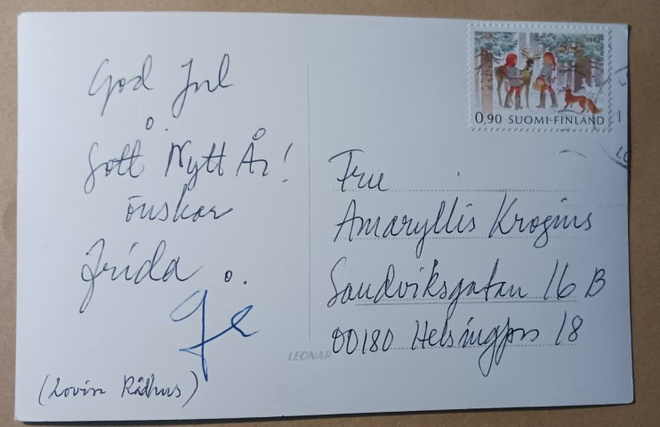 God Jul
o.
Gott Nytt År!
önskar
Frida o.
(Lovisa Rådhus)
1982
0,90 SUOMI-FINLAND
Fru
Amaryllis Krogius
Sandviksgatan 16 B
00180 Helsingfors 18
LEONAR